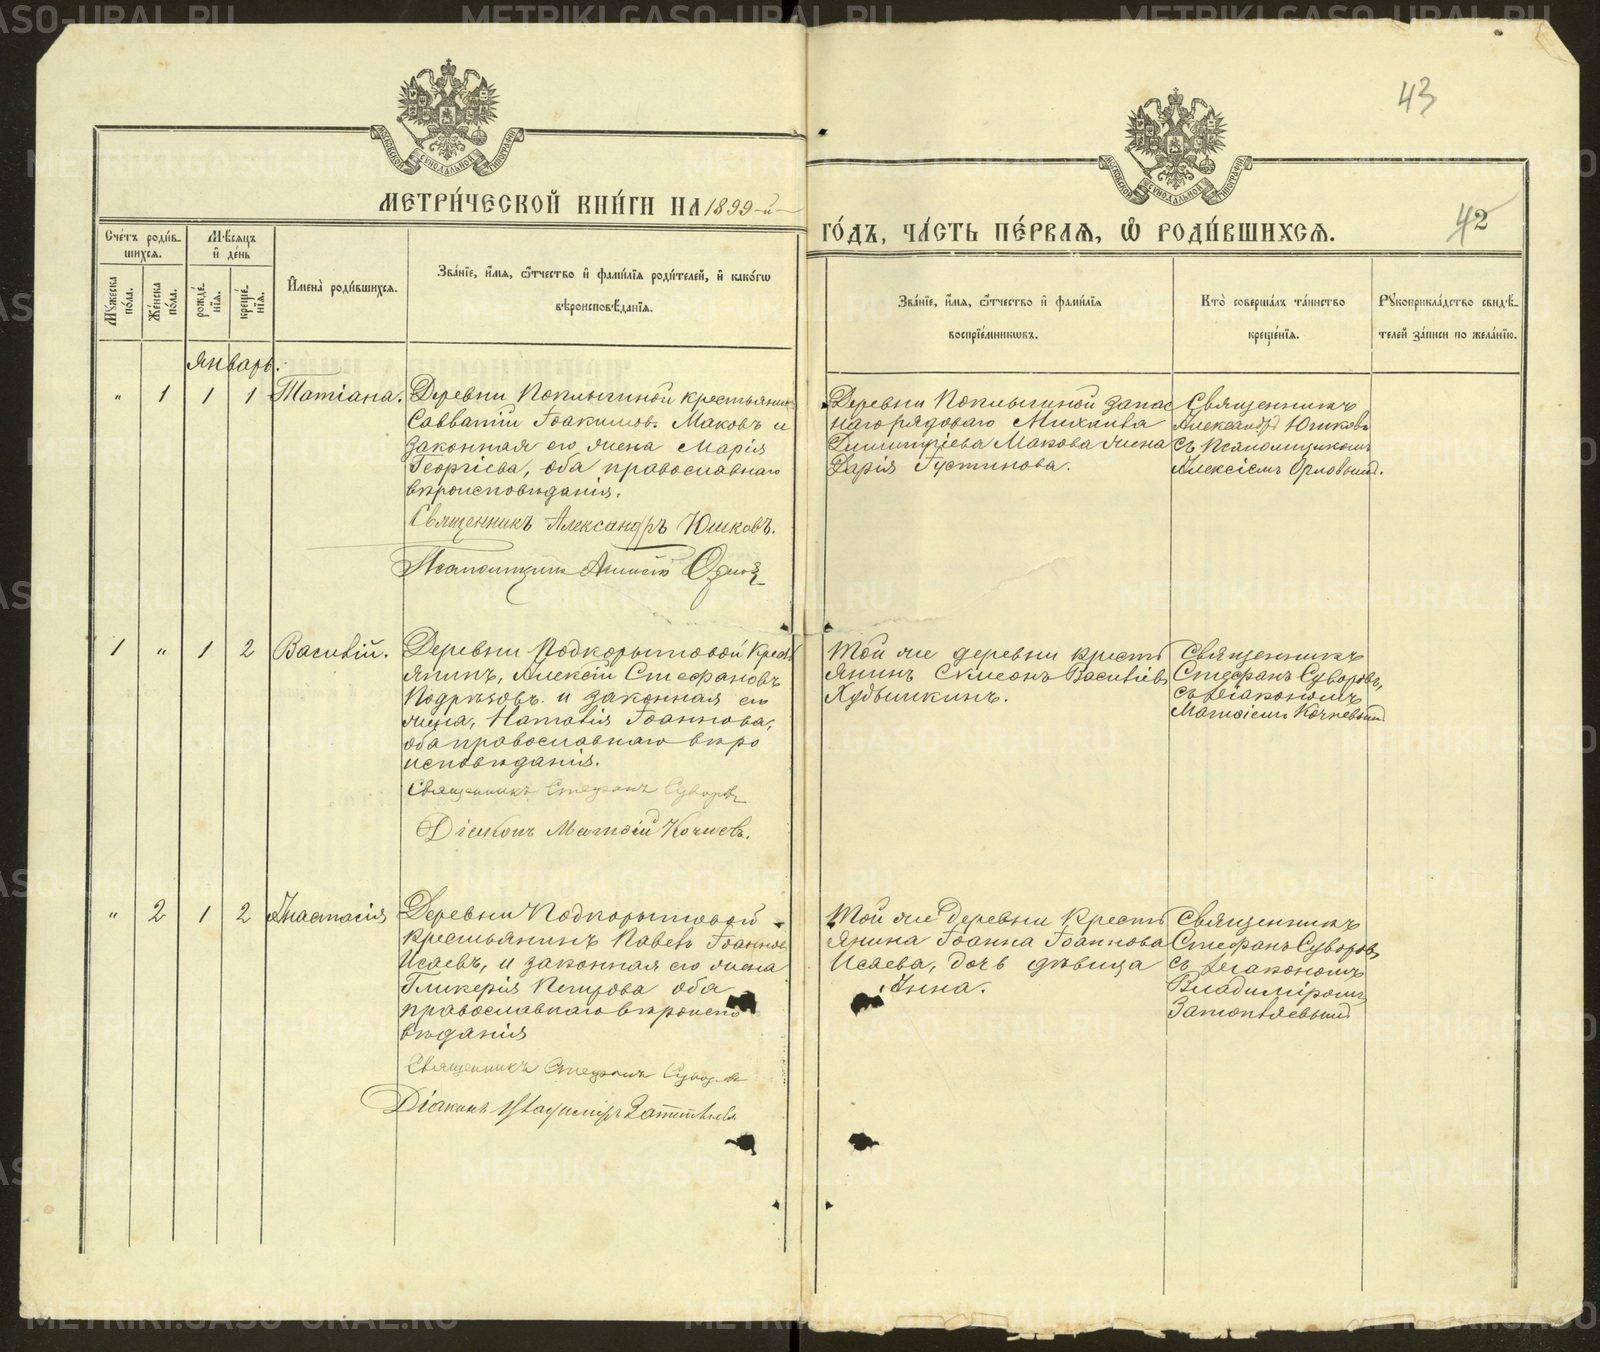 43
42
МЕТРИ́ЧЕСКОЙ КНИ́ГИ НА 1899-й
ГО́ДЪ, ЧА́СТЬ ПЕ́РВАѦ, Ѽ РОДИ́ВШИХСѦ.
Сче́тъ роди́в-
шихсѧ.
Мѣ́сѧцъ
и҆ де́нь
Мꙋ́жеска
по́ла.
Же́нска
по́ла.
рожде́-
нїѧ.
креще́-
нїѧ.
И҆мена̀ роди́вшихсѧ.
Зва́нїе, и҆́мѧ, ѻ҆́тчество и҆ фами́лїѧ роди́телей, и҆ како́гѡ
вѣроисповѣ́данїѧ.
Зва́нїе, и҆́мѧ, ѻ҆́тчество и҆ фами́лїѧ
воспрїе́мникѡвъ.
Кто̀ соверша́лъ та́инство
креще́нїѧ.
Рꙋкоприкла́дство свидѣ́-
телей за́писи по жела́нїю.
Январь.
" 1 1 1 Татіана.
Деревни Поклыгиной крестьянинъ
Савватій Іоакимов. Маковъ и
законная его жена Марія
Георгіева, оба православнаго
вѣроисповѣданія.
Священникъ Александръ Юшковъ.
Псаломщикъ Алексій Орлов
Деревни Поклыгиной запас
наго рядоваго Михаила
Димитріева Макова жена
Дарія Густинова.
Священникъ
Александръ Юшковъ
съ Псаломщикомъ
Алексіемъ Орловымъ.
1 " 1 2 Василій.
Деревни Подкорытовой Крест
янинъ, Алексій Стефановъ
Подрѣзовъ и законная его
жена, Наталія Іоаннова,
оба православнаго вѣро
исповѣданія.
Священникъ Стефанъ Суворовъ
Діаконъ Матѳій Кочневъ.
Той же деревни крестъ
янинъ Симеонъ Василіевъ
Худышкинъ.
Священникъ
Стефанъ Суворовъ,
съ Діакономъ
Матѳіемъ Кочневымъ
" 2 1 2 Анастасія
Деревни Подкорытовой
крестьянинъ Павелъ Іоаннов
Исаевъ, и законная его жена
Гликерія Петрова оба
православнаго вѣроиспо
вѣданія
Священникъ Стефанъ Суворовъ
Діаконъ Владиміръ Затопляевъ
Той же деревни Кресть
янина Іоанна Іоаннова
Исаева, дочь дѣвица
Анна.
Священникъ
Стефанъ Суворовъ
съ Діакономъ
Владиміромъ
Затопляевымъ